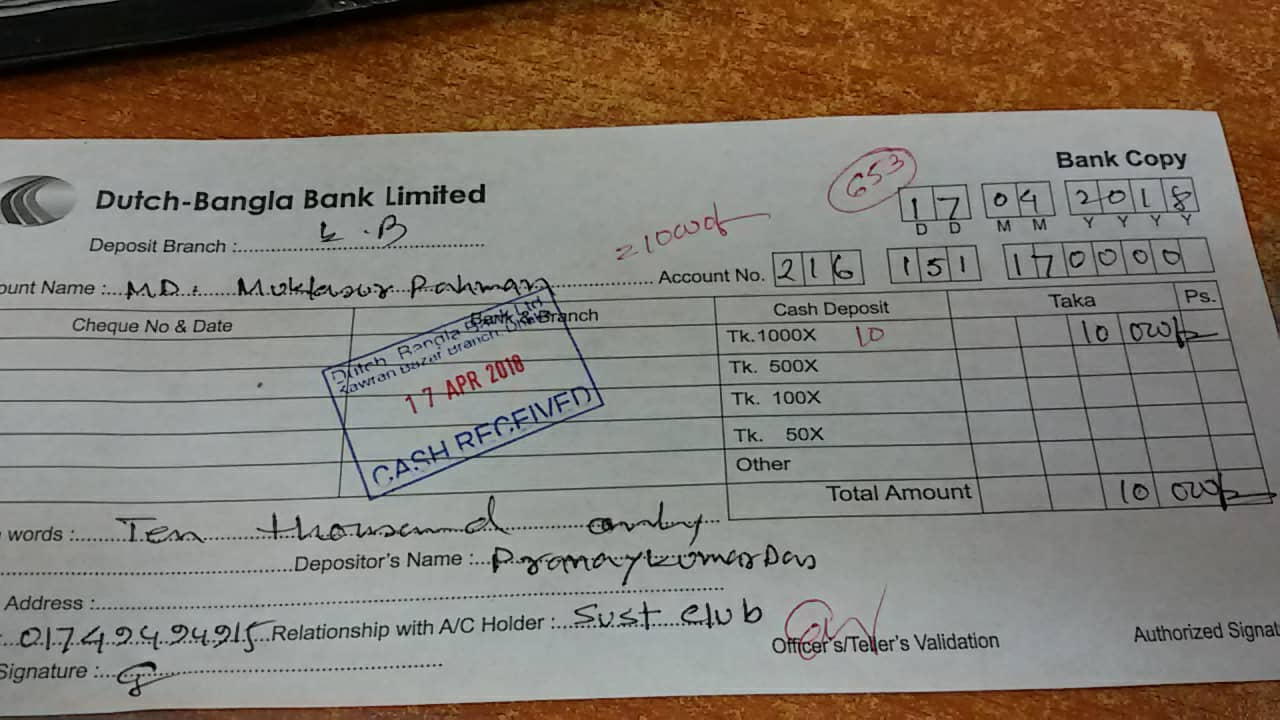 Bank Copy
653
Dutch-Bangla Bank Limited
17 04 2018
D D M M Y Y Y Y
Deposit Branch : K.B
= 10000/-
ount Name : MD. Muktasur Rahman Account No. 216 151 170000
Cheque No & Date Bank & Branch Cash Deposit Taka Ps.
Tk.1000X 10 10 000/-
Tk. 500X
Tk. 100X
Tk. 50X
Other
Total Amount 10 000/-
Dutch Bangla Bank Ltd.
Kawran Bazar Branch, Dhaka
17 APR 2018
CASH RECEIVED
words : Ten thousand only
Depositor's Name : Pranay Kumar Das
Address :
01749494915 Relationship with A/C Holder : Sust club
Officer's/Teller's Validation
Authorized Signat
Signature :